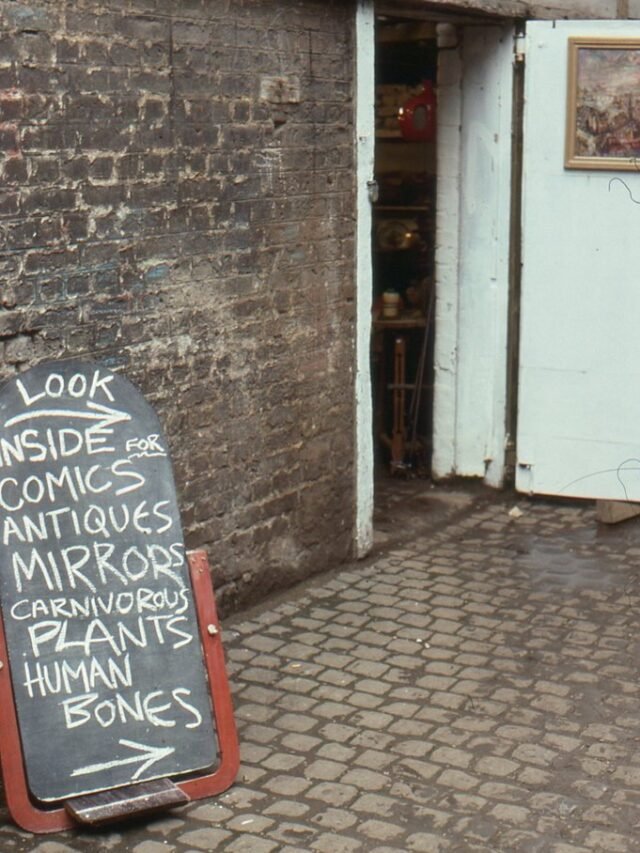 LOOK
INSIDE FOR
COMICS
ANTIQUES
MIRRORS
CARNIVOROUS
PLANTS
HUMAN
BONES